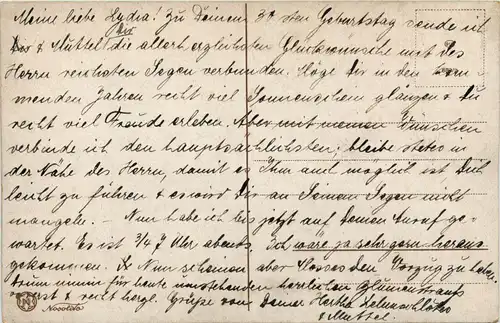 Meine liebe Lydia! Zu Deinem 30sten Geburtstag sende ich
Dir & Muttel die allerherzlichsten Glückwünsche mit des
Herrn reichsten Segen verbunden. Möge Dir in den kom-
menden Jahren recht viel Sonnenschein glänzen & Du
recht viel Freude erleben. Aber mit meinen Wünschen
verbinde ich den hauptsächlichsten; bleibe stets in
der Nähe des Herrn, damit es Ihm auch möglich ist Dich
leicht zu führen & es wird Dir an Seinem Segen nicht
mangeln. – Nun habe ich bis jetzt auf Deinen Anruf ge-
wartet. Es ist 3/4 7 Uhr abends. Ich wäre ja sehr gern heraus-
gekommen. Nun scheinen aber den Vorzug zu haben
nimm für heute umstehenden herzlichen Blumenstrauss
& recht herzl. Grüsse von Deiner Hertha
& Muttel.
Novolito